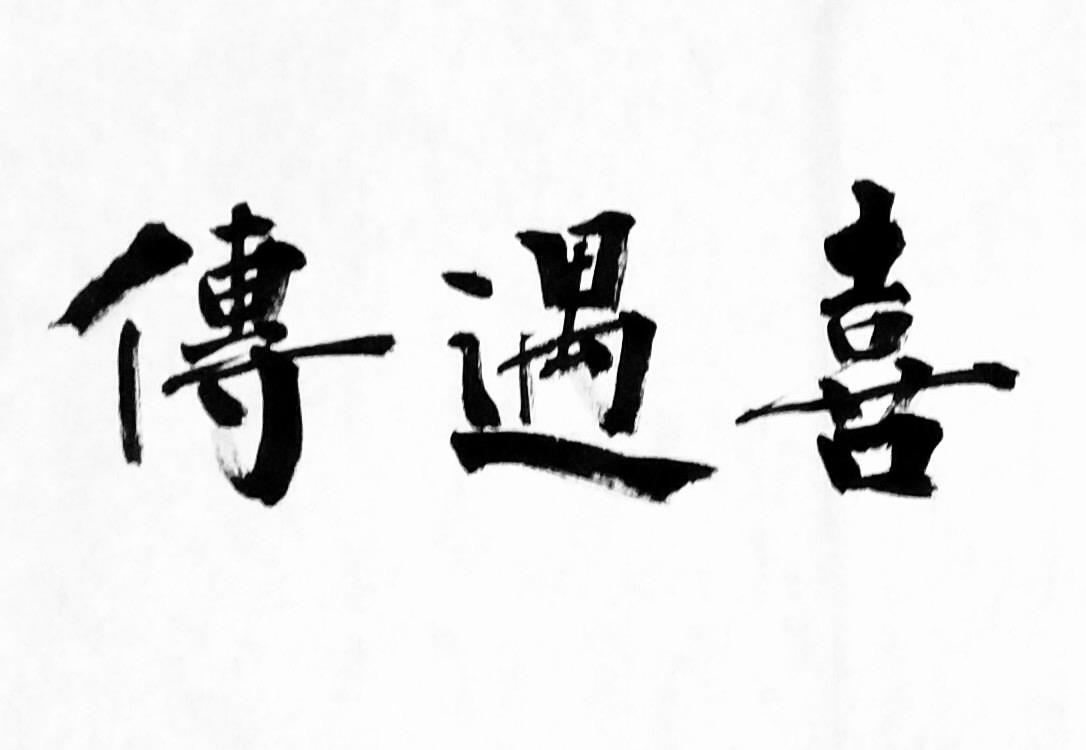 喜遇傳